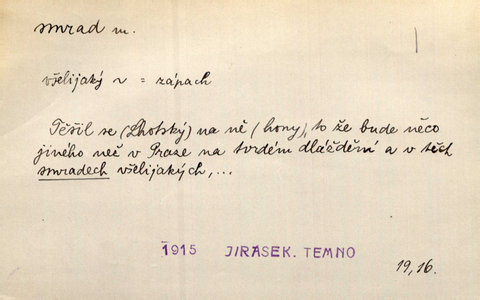 smrad m.
všelijaký ~ = zápach
Těšil se (Lhotský) na ně (hony), to že bude něco
jiného než v Praze na tvrdém dláždění a v těch
smradech všelijakých,...
1915 JIRASEK. TEMNO
19,16.